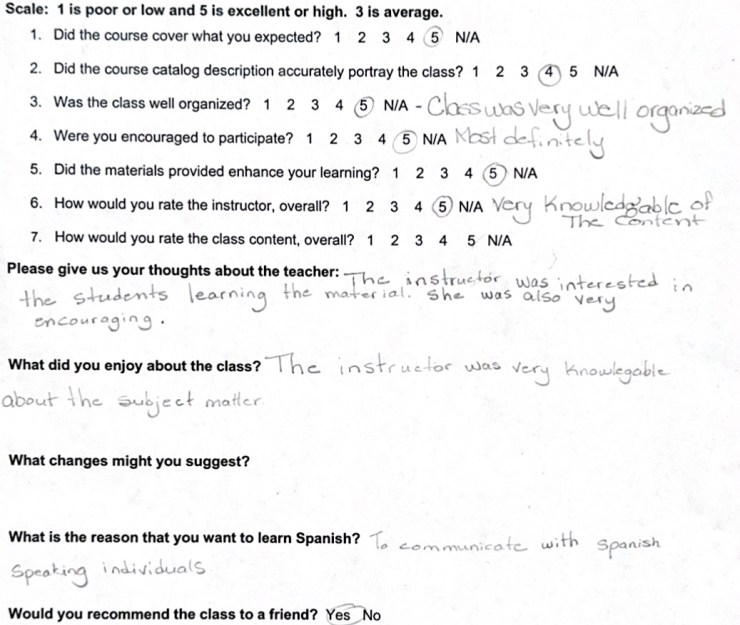 Scale: 1 is poor or low and 5 is excellent or high. 3 is average.
1. Did the course cover what you expected? 1 2 3 4 5 N/A
2. Did the course catalog description accurately portray the class? 1 2 3 4 5 N/A
3. Was the class well organized? 1 2 3 4 5 N/A - Class was very well organized
4. Were you encouraged to participate? 1 2 3 4 5 N/A Most definitely
5. Did the materials provided enhance your learning? 1 2 3 4 5 N/A
6. How would you rate the instructor, overall? 1 2 3 4 5 N/A Very Knowledgable of
The Content
7. How would you rate the class content, overall? 1 2 3 4 5 N/A
Please give us your thoughts about the teacher: The instructor was interested in
the students learning the material. She was also very
encouraging.
What did you enjoy about the class? The instructor was very Knowlegable
about the subject matter
What changes might you suggest?
What is the reason that you want to learn Spanish? To communicate with Spanish
Speaking individuals
Would you recommend the class to a friend? Yes No